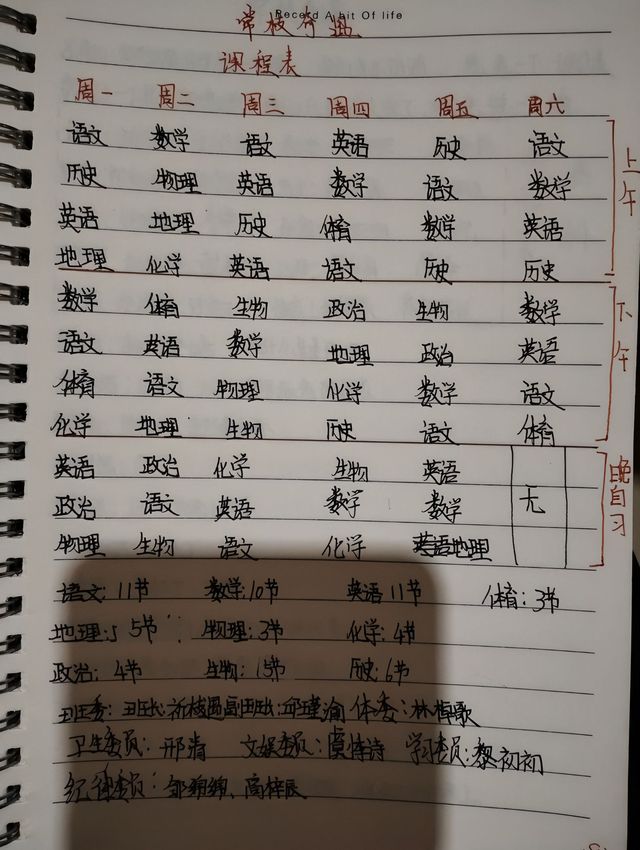 Record A bit Of life
课程表
周一 周二 周三 周四 周五 周六
语文 数学 语文 英语 历史 语文
历史 物理 英语 数学 语文 数学
英语 地理 历史 体育 数学 英语
地理 化学 英语 语文 历史 历史
上午
数学 体育 生物 政治 生物 数学
语文 英语 数学 地理 政治 英语
体育 语文 物理 化学 数学 语文
化学 地理 生物 历史 语文 体育
下午
英语 政治 化学 生物 英语
政治 语文 英语 数学 数学 无
物理 生物 语文 化学 地理
晚自习
语文:11节 数学:10节 英语11节 体育:3节
地理:5节 物理:3节 化学:4节
政治:4节 生物:5节 历史:6节
班委:班长: 副班长: 体委:林
卫生委员:邢清 文娱委员:虞诗 学习委员:黎初初
纪律委员: 高梓辰